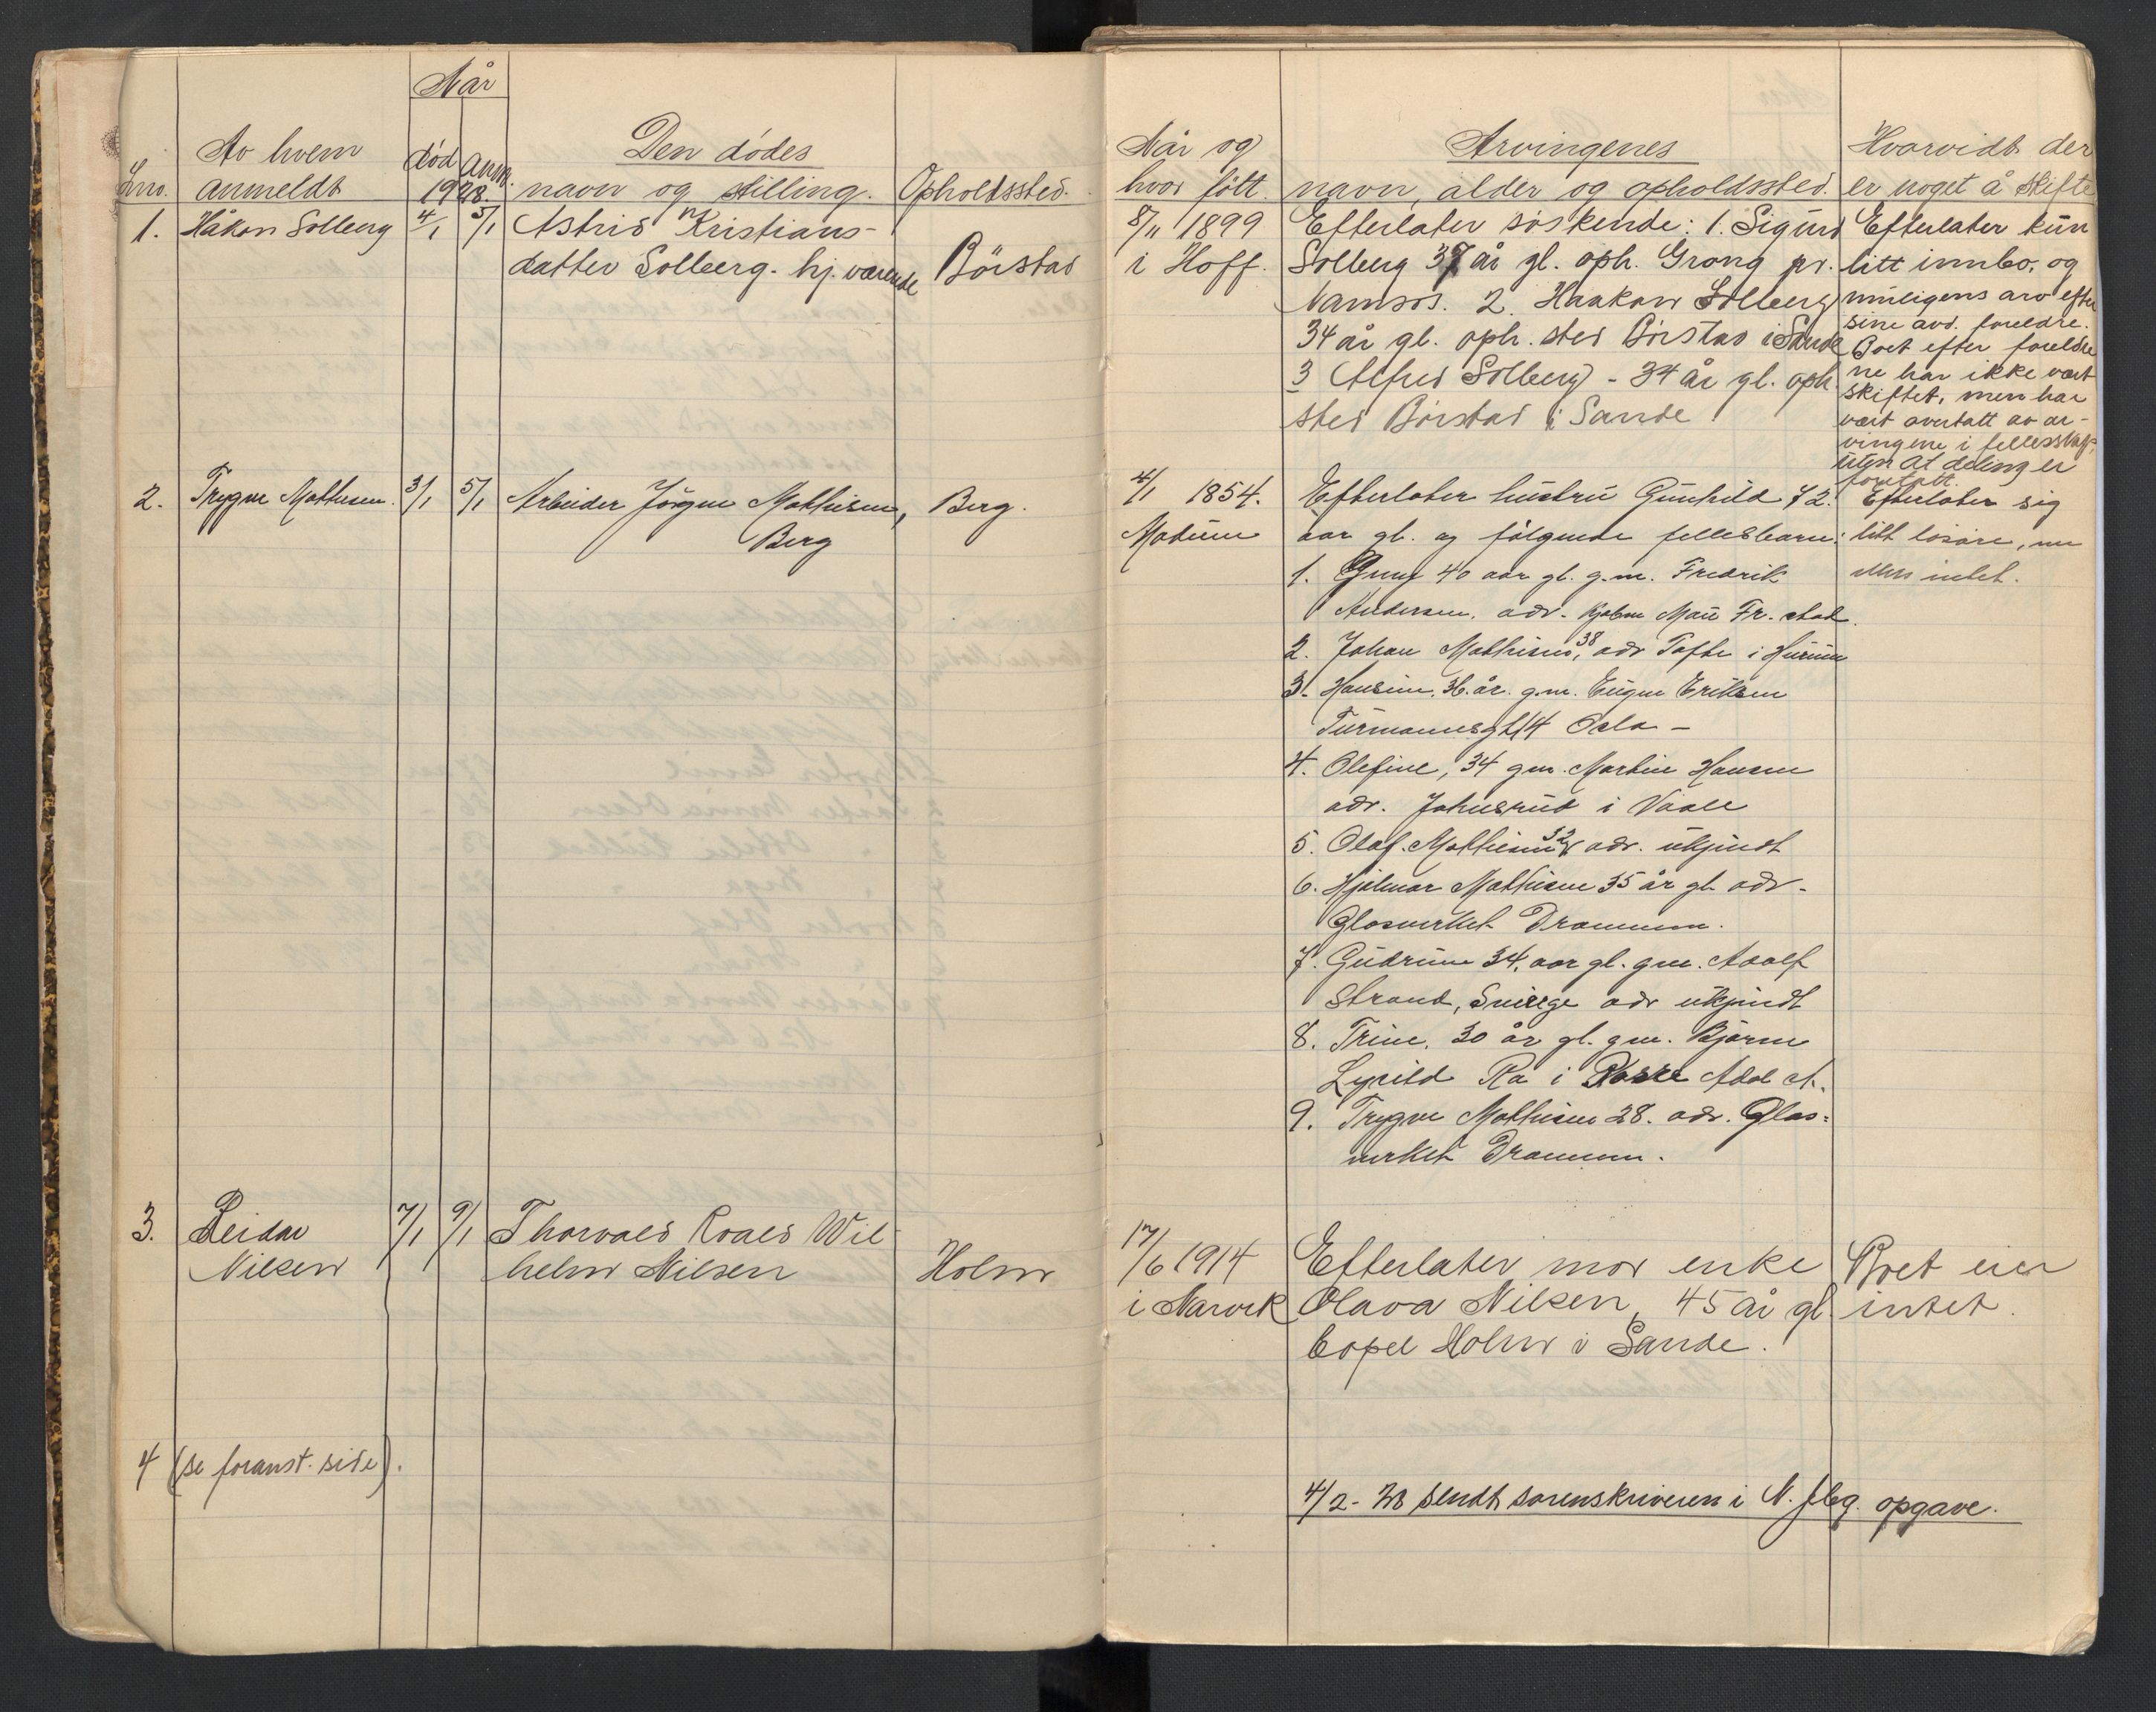 Når
Lnro. Av hvem anmeldt død anm. 1928. Den dødes navn og stilling. Opholdssted. Når og hvor født. Arvingenes navn, alder og opholdssted. Hvorvidt der er noget å skifte
1. Håkon Solberg 4/1 5/1 Astrid Kristians-
datter Solberg. hj. værende Börstad
8/11 1899
i Hoff.
Efterlater søskende: 1. Sigurd
Solberg 37 år gl. oph. Grong pr.
Namsos. 2. Haakon Solberg
34 år gl. oph. sted Börstad i Sande
3 Alfred Solberg - 34 år gl. oph.
sted Börstad i Sande
Efterlater kun
litt innbo, og
muligens arv efter
sine avd. foreldre.
Boet efter foreldre
ne har ikke vært
skiftet, men har
vært overtatt av ar-
vingene i fellesskap,
uten at deling er
foretatt.
2. Trygve Mathisen. 3/1 5/1 Arbeider Jörgen Mathisen, Berg.
Berg
4/1 1854.
Modum
Efterlater hustru Gunhild 72.
aar gl. og følgende fellesbarn:
1. 40 aar gl. g.m. Fredrik
Andersen. adr. Fr. stad.
2. Johan Mathisen, 38 adr Tofte i Hurum
3. Hansine. 36. år. g.m. Eugen Eriksen
14 Oslo -
4. Olefine, 34 gm. Martin Hansen
adr. Johnsrud i Vaale
5. Olaf. Mathisen 32 adr. ukjendt
6. Hjalmar Mathisen 35 år gl. adr.
Glasverket Drammen.
7. Gudrun 34. aar gl. gm. Adolf
Strand, Sverige adr ukjendt
8. Trine. 30 år gl. gm. Bjarne
Ra i
9. Trygve Mathisen 28. adr. Glas=
verket Drammen.
Efterlater sig
litt løsøre, men
ellers intet.
3. Reidar 7/1 9/1 Thorvald Roald Wil-
Nilsen helm Nilsen Holm
17/6 1914
i Narvik
Efterlater mor enke
Olava Nilsen, 45 år gl.
bopel Holm i Sande.
Boet eier
intet.
4 (se foranst. side).
4/2-28 sendt sorenskriveren i N. Jbg. opgave.